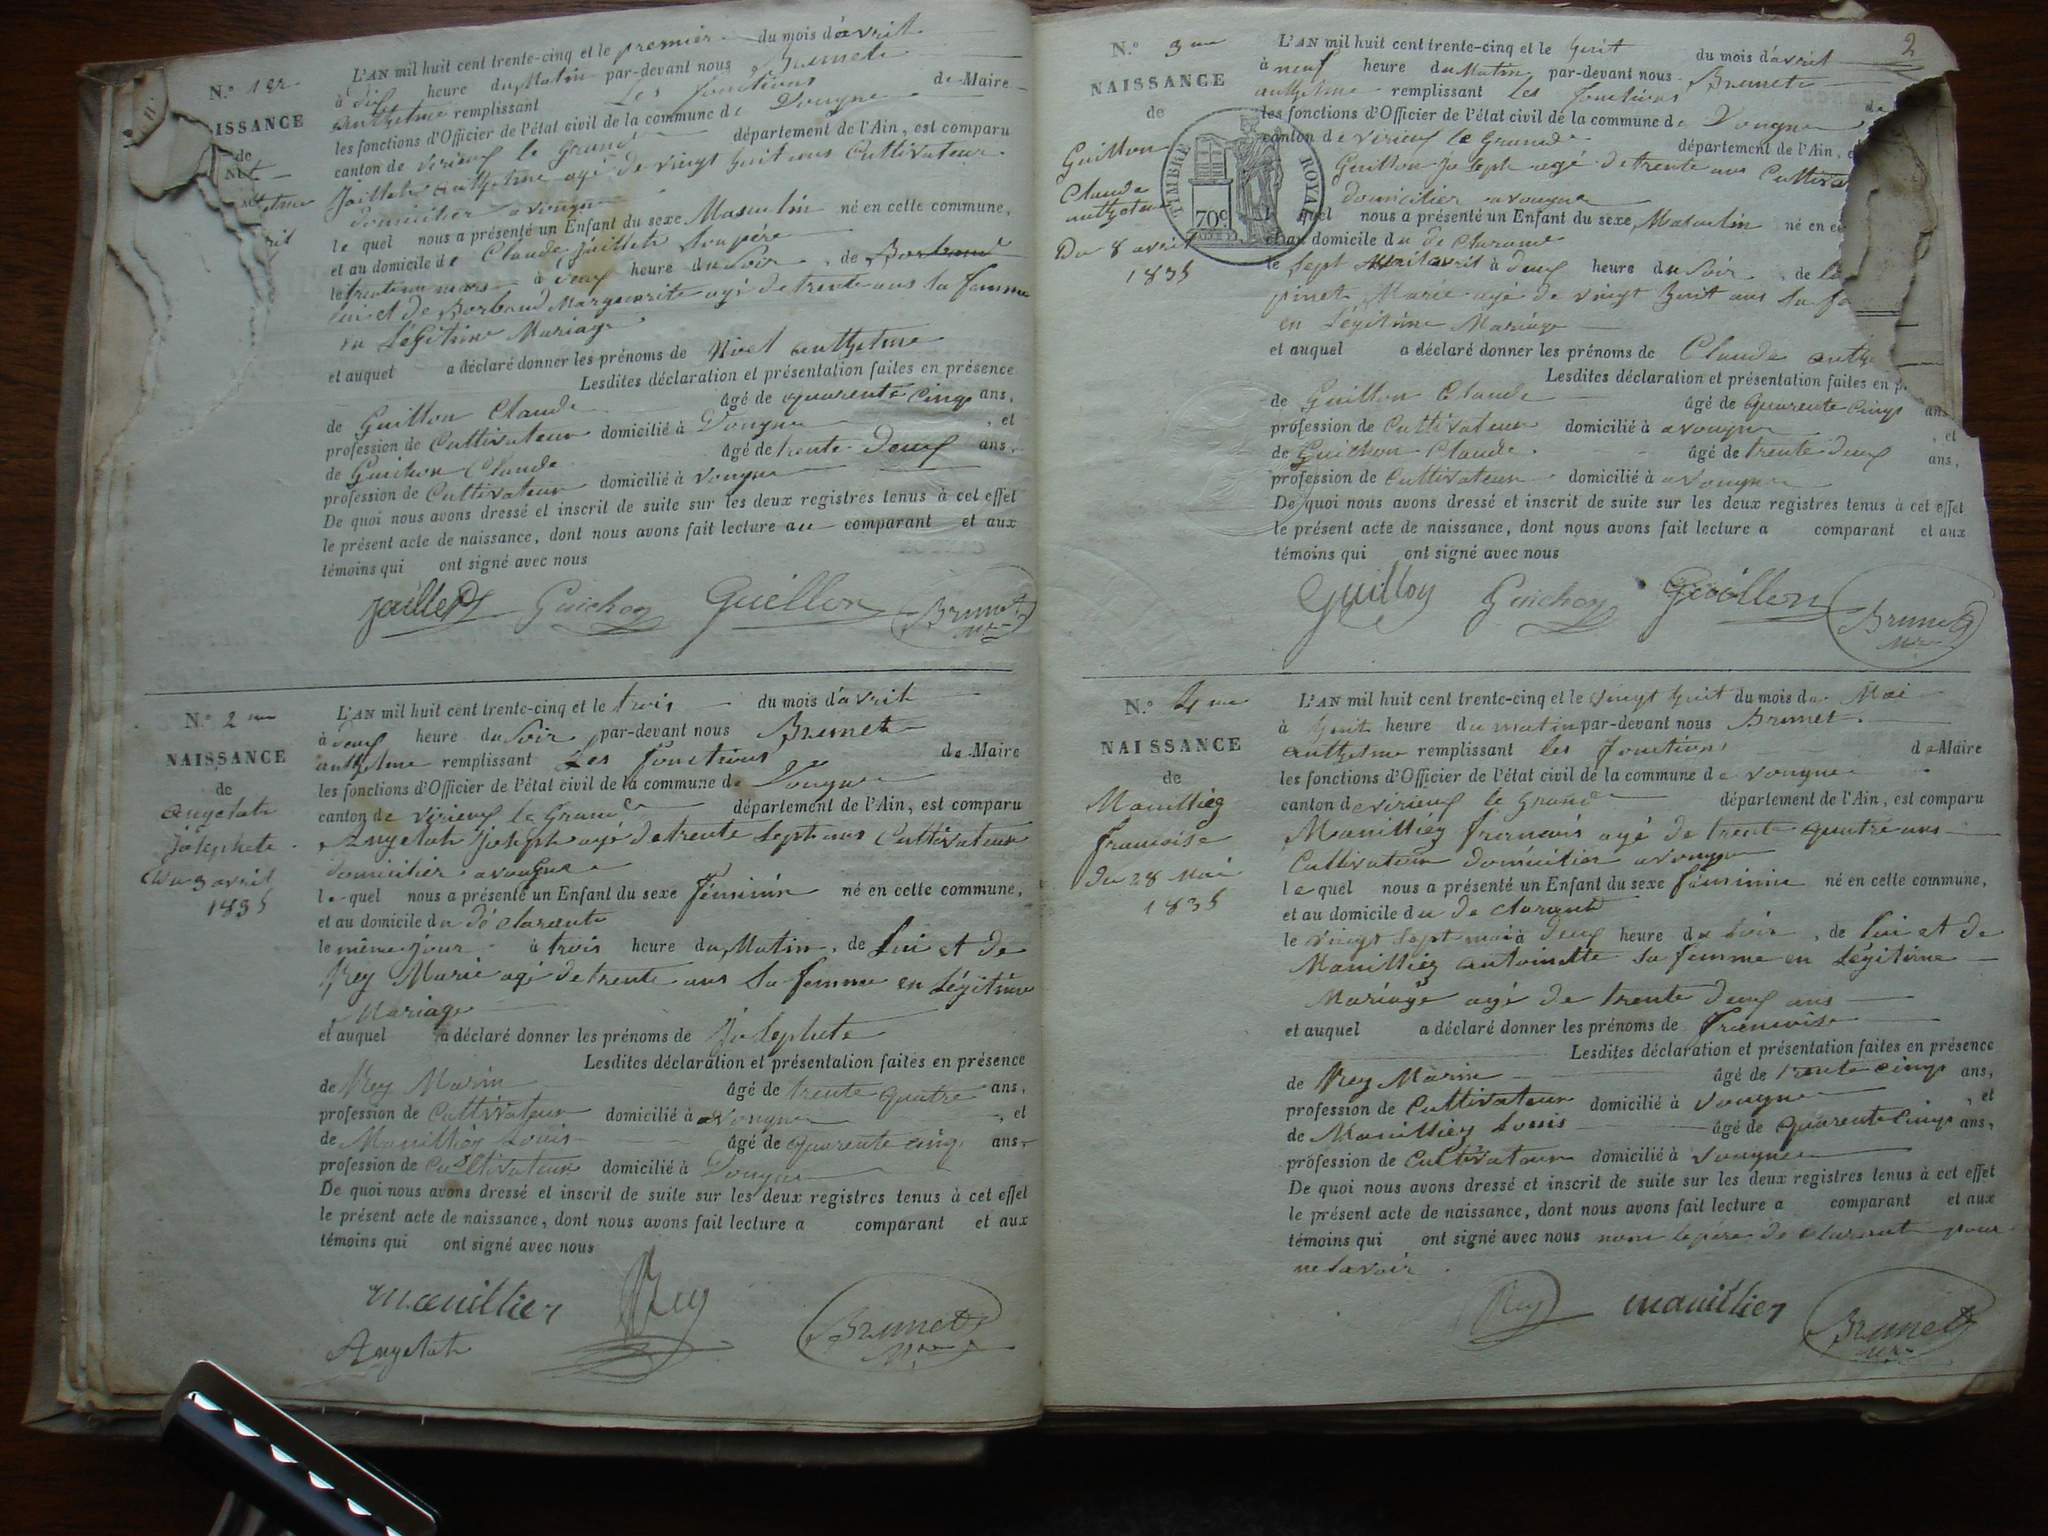 N.º 1er
ISSANCE
de
L'AN mil huit cent trente-cinq et le premier du mois d'avril
à dix heure du Matin par-devant nous Brunet
anthelme remplissant Les fonctions de Maire
les fonctions d'Officier de l'état civil de la commune de Vongne
canton de virieux le Grand département de l'Ain, est comparu
Jaillet anthelme agé de vingt huit ans Cultivateur
domicilier a vongne
le quel nous a présenté un Enfant du sexe Masculin né en cette commune,
et au domicile de Claude Jaillet son père
le trente un mars à deux heure du soir, de Borband
lui et de Borband Marguerite agé de trente ans sa femme
en Légitime Mariage
et auquel a déclaré donner les prénoms de anthelme
Lesdites déclaration et présentation faites en présence
de Guillon Claude âgé de quarente cinq ans,
profession de Cultivateur domicilié à Vongne, et
de Guichon Claude âgé de trente deux ans,
profession de Cultivateur domicilié à vongne
De quoi nous avons dressé et inscrit de suite sur les deux registres tenus à cet effet
le présent acte de naissance, dont nous avons fait lecture au comparant et aux
témoins qui ont signé avec nous
Jaillet Guichon Guillon Brunet
N.º 2me
NAISSANCE
de
Angelot
Josephete
Du 3 avril
1835
L'AN mil huit cent trente-cinq et le trois du mois d'avril
à deux heure du soir par-devant nous Brunet
anthelme remplissant Les fonctions de Maire
les fonctions d'Officier de l'état civil de la commune de Vongne
canton de virieux le Grand département de l'Ain, est comparu
Angelot Joseph agé de trente sept ans Cultivateur
domicilier a vongne
le quel nous a présenté un Enfant du sexe féminin né en cette commune,
et au domicile du déclarent
le même jour à trois heure du Matin, de lui et de
Rey Marie agé de trente ans sa femme en Légitime
Mariage
et auquel a déclaré donner les prénoms de Josephete
Lesdites déclaration et présentation faites en présence
de Rey Marin âgé de trente quatre ans,
profession de Cultivateur domicilié à avongne, et
de Manillier Louis âgé de quarente cinq ans,
profession de Cultivateur domicilié à Vongne
De quoi nous avons dressé et inscrit de suite sur les deux registres tenus à cet effet
le présent acte de naissance, dont nous avons fait lecture a comparant et aux
témoins qui ont signé avec nous
manillier Rey Brunet
Angelot
2
N.º 3me
NAISSANCE
de
Guillon
Claude
Du 8 avril
1835
TIMBRE ROYAL
70c
L'AN mil huit cent trente-cinq et le huit du mois d'avril
à neuf heure du Matin par-devant nous Brunet
anthelme remplissant Les fonctions de
les fonctions d'Officier de l'état civil de la commune de Vongne
canton de virieux le Grand département de l'Ain,
Guillon Joseph agé de trente ans
domicilier avongne
quel nous a présenté un Enfant du sexe Masculin né en
et au domicile du de clarant
le sept avril à deux heure du soir, de
pinet Marie agé de vingt huit ans sa
en Légitime Mariage
et auquel a déclaré donner les prénoms de Claude
Lesdites déclaration et présentation faites en
de Guillon Claude âgé de quarente cinq ans
profession de Cultivateur domicilié à avongne, et
de Guichon Claude âgé de trente deux ans,
profession de Cultivateur domicilié à avongne
De quoi nous avons dressé et inscrit de suite sur les deux registres tenus à cet effet
le présent acte de naissance, dont nous avons fait lecture a comparant et aux
témoins qui ont signé avec nous
Guillon Guichon Guillon Brunet
N.º 4me
NAISSANCE
de
Manillier
francoise
du 28 Mai
1835
L'AN mil huit cent trente-cinq et le vingt huit du mois du Mai
à huit heure du matin par-devant nous Brunet
anthelme remplissant les fonctions de Maire
les fonctions d'Officier de l'état civil de la commune de vongne
canton de virieux le Grand département de l'Ain, est comparu
Manillier francois agé de trente quatre ans
Cultivateur domicilier a vongne
le quel nous a présenté un Enfant du sexe féminin né en cette commune,
et au domicile du de clarant
le vingt sept mai à deux heure du soir, de lui et de
Manillier antoinette sa femme en Légitime
Mariage agé de trente deux ans
et auquel a déclaré donner les prénoms de francoise
Lesdites déclaration et présentation faites en présence
de Rey Marin âgé de trente cinq ans,
profession de Cultivateur domicilié à vongne, et
de Manillier Louis âgé de quarente cinq ans,
profession de Cultivateur domicilié à vongne
De quoi nous avons dressé et inscrit de suite sur les deux registres tenus à cet effet
le présent acte de naissance, dont nous avons fait lecture a comparant et aux
témoins qui ont signé avec nous non le père de clarant pour
ne savoir
Rey manillier Brunet